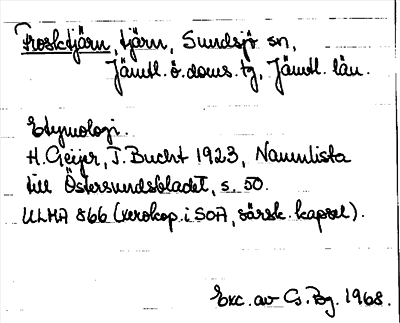 Frosktjärn, tjärn, Sundsjö sn,
Jämtl. ö. doms. tg, Jämtl. län.
Etymologi.
H. Geijer, T. Bucht 1923, Namnlista
till Östersundsbladet, s. 50.
ULMA 866 (xerokop. i SOA, särsk. kapsel).
Exc. av G. Bg. 1968.